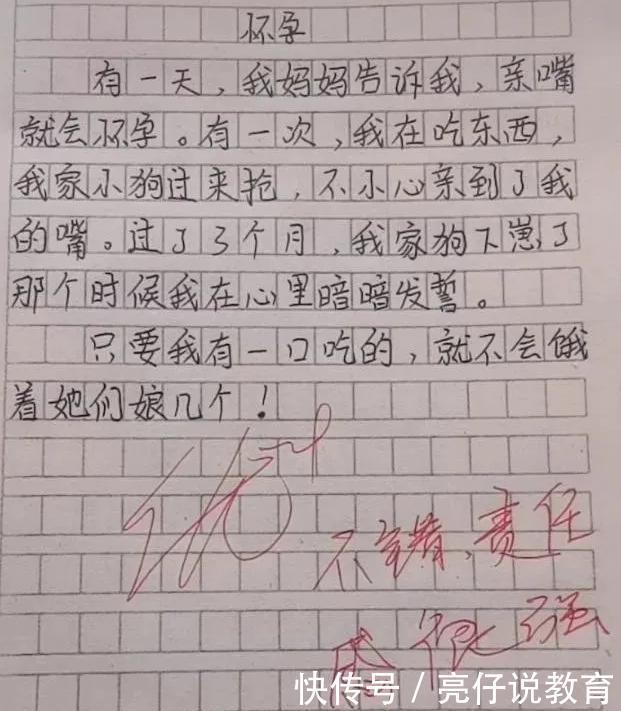 怀孕
有一天，我妈妈告诉我，亲嘴
就会怀孕。有一次，我在吃东西，
我家小狗过来抢，不小心亲到了我
的嘴。过了3个月，我家狗下崽了
那个时候我在心里暗暗发誓。
只要我有一口吃的，就不会饿
着她们娘几个！
不错，责任
感很强
快传号 / 亮仔说教育